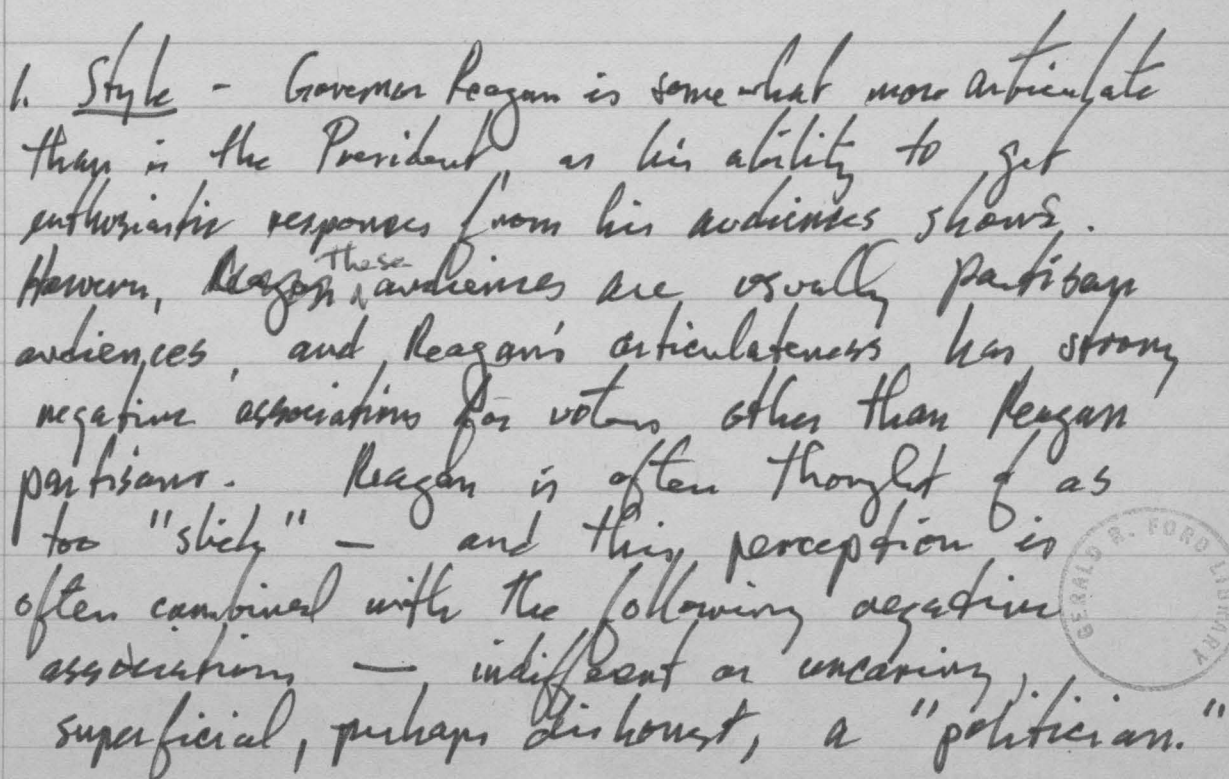 1. Style - Governor Reagan is somewhat more articulate
than is the President, as his ability to get
enthusiastic responses from his audiences shows.
However, Reagan These audiences are usually partisan
audiences, and Reagan's articulateness has strong
negative associations for voters other than Reagan
partisans. Reagan is often thought of as
too "slick" — and this perception is
often combined with the following negative
associations — indifferent or uncaring,
superficial, perhaps dishonest, a "politician."
GERALD R. FORD LIBRARY